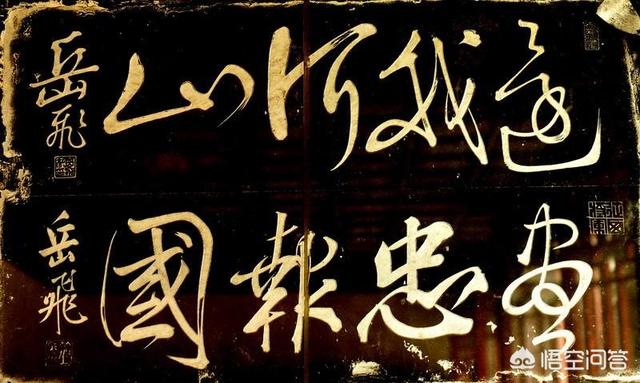 還我河山
岳飛
盡忠報國
岳飛
悟空问答